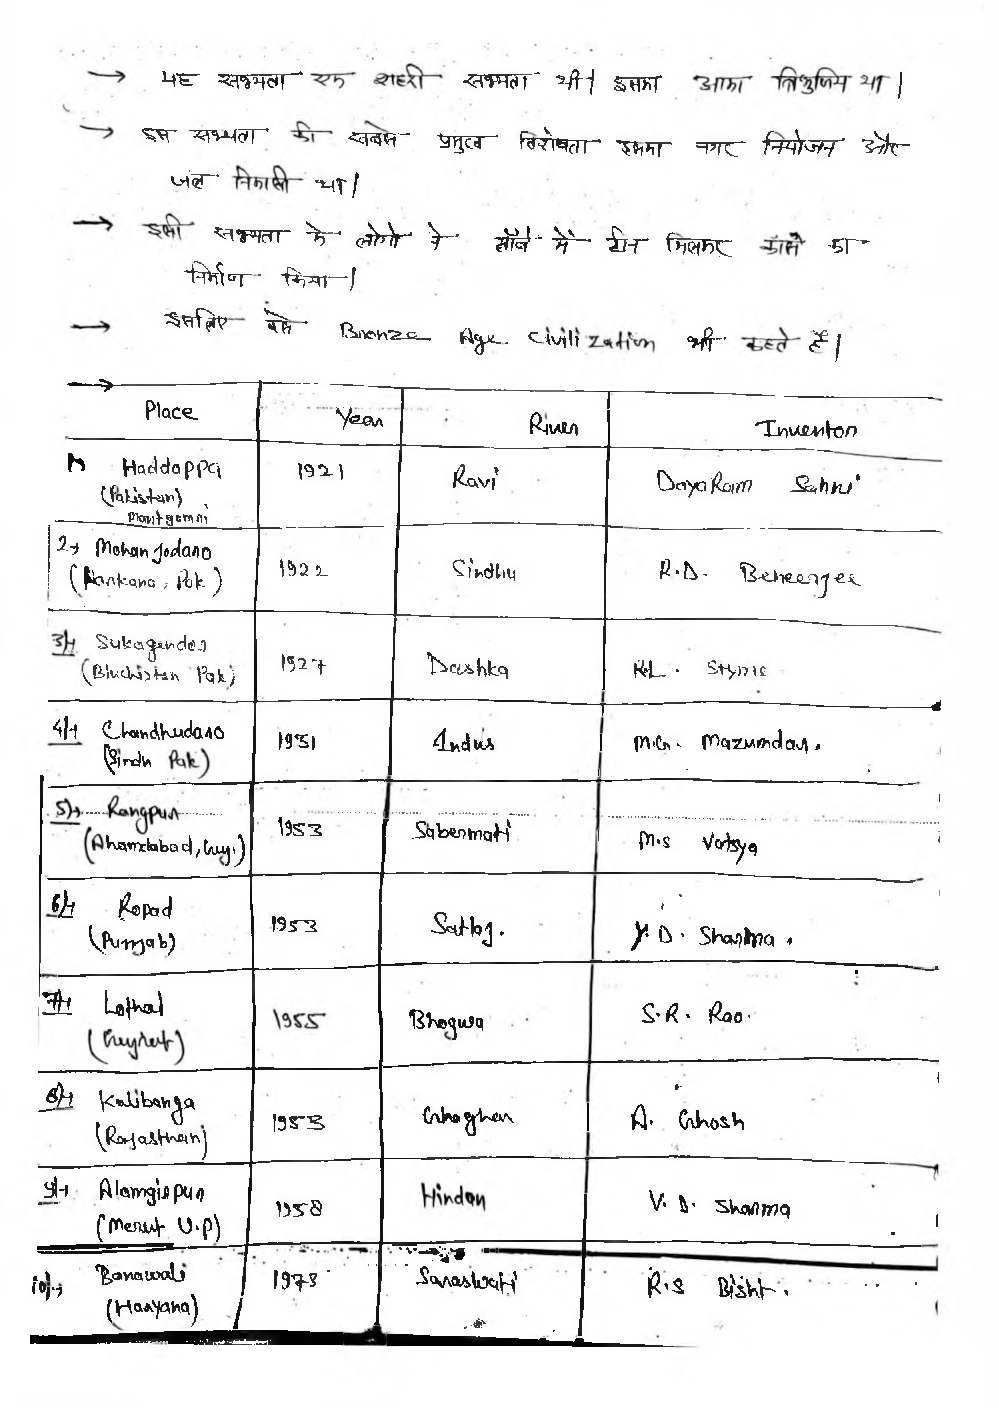 → यह सभ्यता एक शहरी सभ्यता थी। इसका आका त्रिभुजिय था।
→ इस सभ्यता की सबसे प्रमुख विशेषता इसका नगर नियोजन और
जल निकासी था।
→ इसी सभ्यता के लोगो ने ताँबे में टीन मिलाकर काँसे का
निर्माण किया।
→ इसलिए इसे Bronze Age Civilization भी कहते हैं।
→
Place Year River Inventor
1) Haddappa 1921 Ravi DayaRam Sahni
(Pakistan)
Montgomri
2→ Mohanjodaro 1922 Sindhu R.D. Benerjee
(Larkana, Pak)
3) Sukagender 1927 Dashka R.L. Styne
(Bluchistan Pak)
4) Chandhudaro 1931 Indus M.G. Mazumdar.
(Sindh Pak)
5) Rangpur 1953 Sabermati M.S Vatsya
(Ahamdabad, Guj.)
6) Ropad 1953 Satlaj. Y.D. Sharma.
(Punjab)
7) Lothal 1955 Bhogwa S.R. Rao.
(Gujrat)
8) Kalibanga 1953 Ghaghar A. Ghosh
(Rajasthan)
9) Alamgirpur 1958 Hindan Y.D. Sharma
(Merut U.P)
10) Banawali 1973 Saraswati R.S Bisht.
(Haryana)